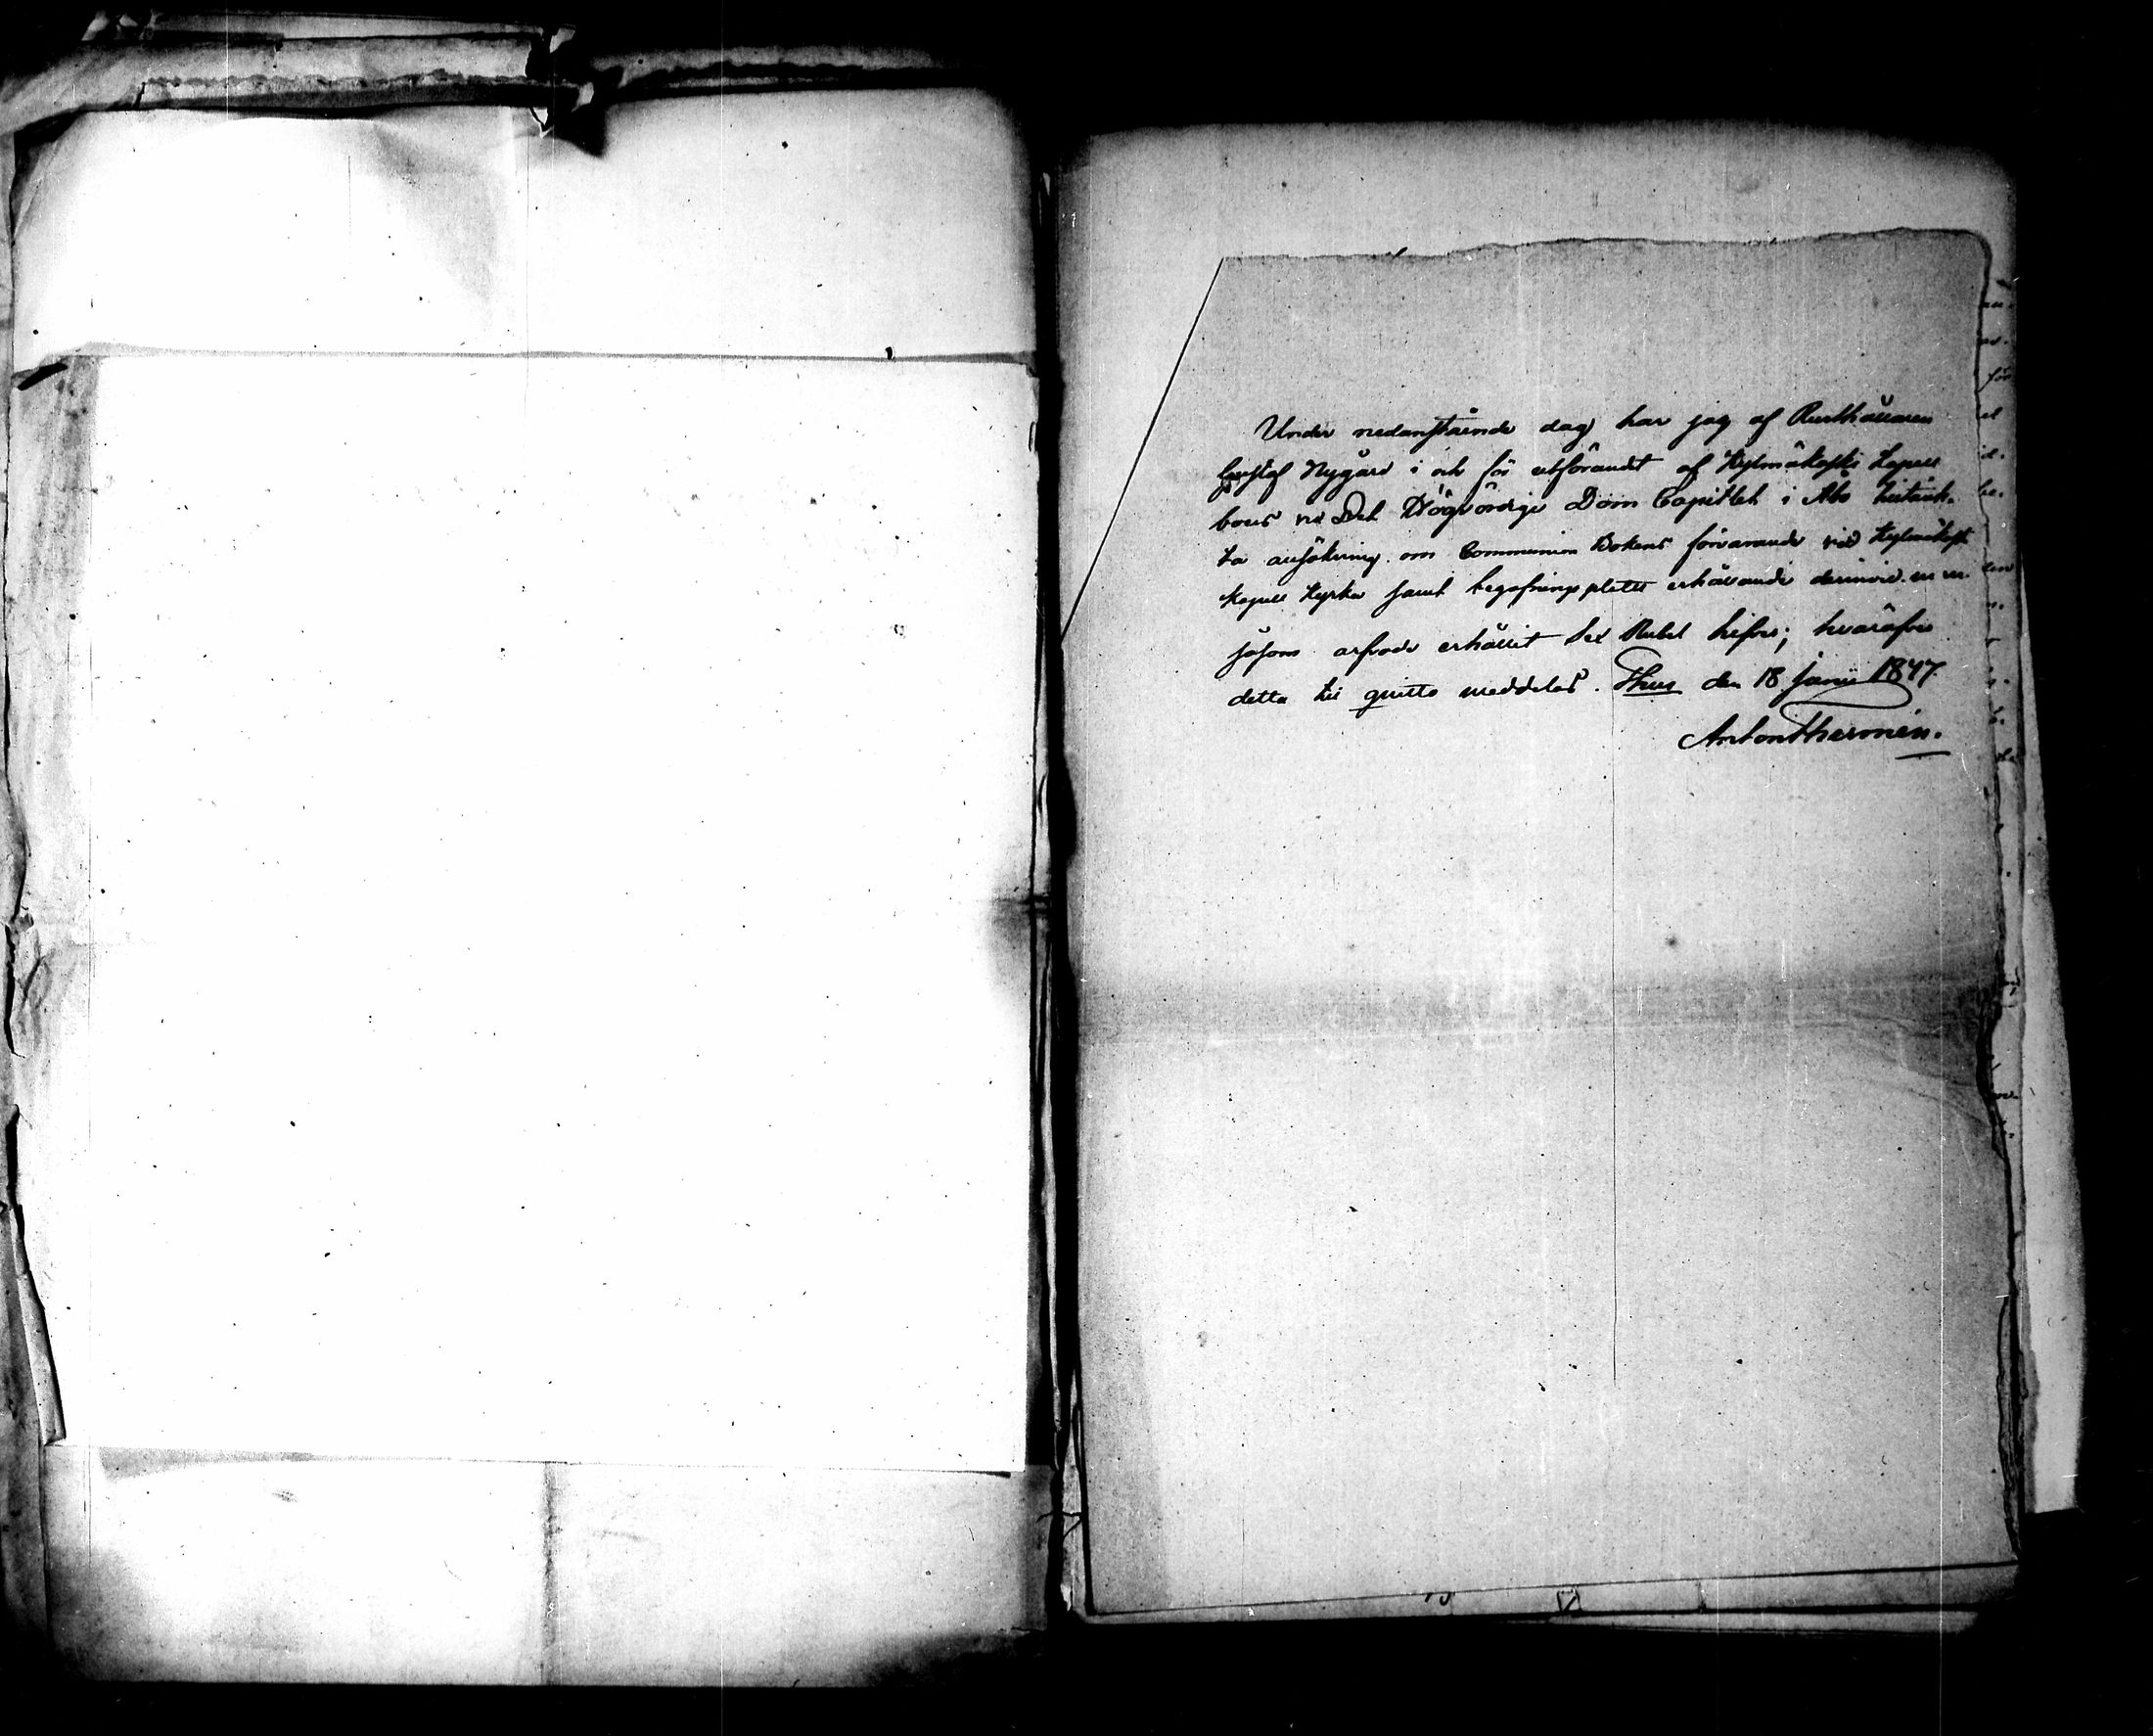 Under nedanstående dag har jag af Rusthållaren
Gustaf Nygård i och för utförandet af Kylmäkoski Capell
boers vid Det Högvördige Dom Capitlet i Åbo
ansökning om Communion Bokens förvarande vid Kylmäkoski
Kapell Kyrka samt begrafningsplatss erhållande derinvid m. m.
såsom arfvode erhållit Sex Rubel Silfver; hvaröfver
detta till quitto meddelas. Thus den 18 Junii 1847.
Anton Thermén.